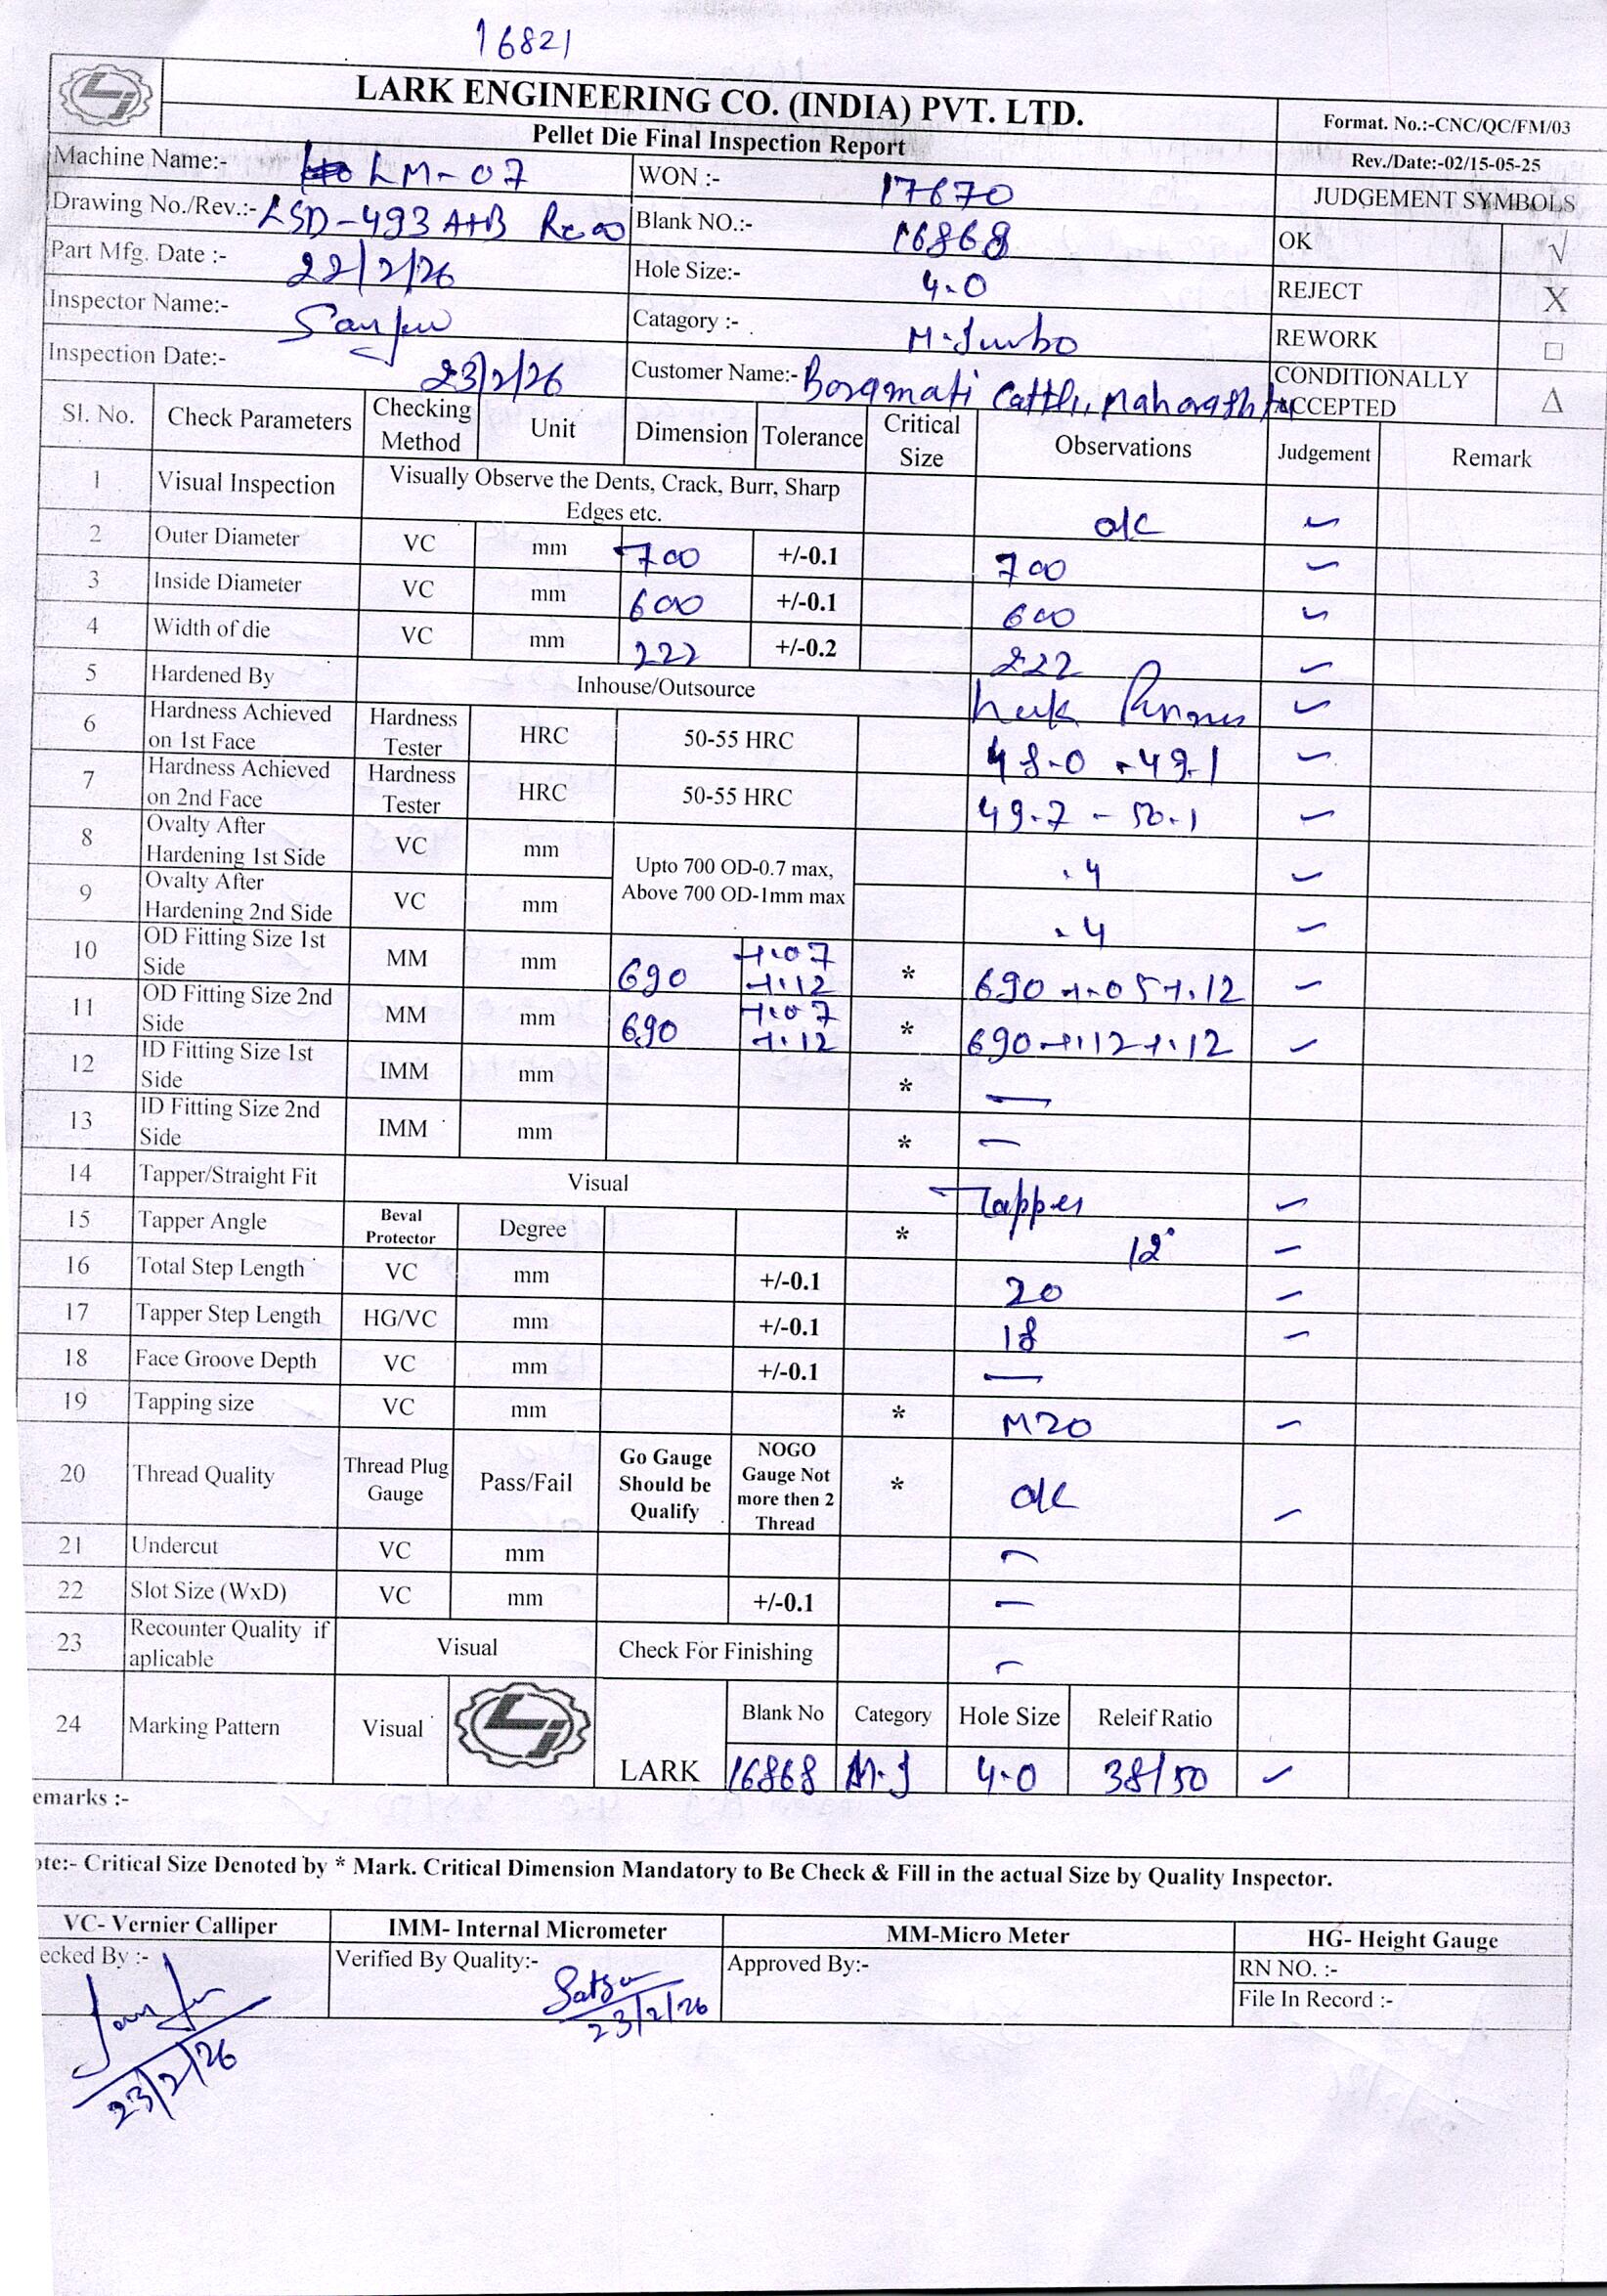 16821
LARK ENGINEERING CO. (INDIA) PVT. LTD.
Pellet Die Final Inspection Report
Format. No.:-CNC/QC/FM/03
Rev./Date:-02/15-05-25
Machine Name:- LM-07 WON :- 17670 JUDGEMENT SYMBOLS
Drawing No./Rev.:- LSD-493 A+B Blank NO.:- 16868 OK √
Part Mfg. Date :- 22/2/26 Hole Size:- 4.0 REJECT X
Inspector Name:- Sanjeev Catagory :- M.Jumbo REWORK □
Inspection Date:- 23/2/26 Customer Name:- Cattle, CONDITIONALLY ACCEPTED Δ
Sl. No. Check Parameters Checking Method Unit Dimension Tolerance Critical Size Observations Judgement Remark
1 Visual Inspection Visually Observe the Dents, Crack, Burr, Sharp Edges etc. ok ✓
2 Outer Diameter VC mm 700 +/-0.1 700 ✓
3 Inside Diameter VC mm 600 +/-0.1 600 ✓
4 Width of die VC mm 222 +/-0.2 222 ✓
5 Hardened By Inhouse/Outsource ✓
6 Hardness Achieved on 1st Face Hardness Tester HRC 50-55 HRC 48.0 - 49.1 ✓
7 Hardness Achieved on 2nd Face Hardness Tester HRC 50-55 HRC 49.7 - 50.1 ✓
8 Ovalty After Hardening 1st Side VC mm Upto 700 OD-0.7 max, Above 700 OD-1mm max .4 ✓
9 Ovalty After Hardening 2nd Side VC mm .4 ✓
10 OD Fitting Size 1st Side MM mm 690 +.07 +.12 * 690 +.05 +.12 ✓
11 OD Fitting Size 2nd Side MM mm 690 +.07 +.12 * 690 +.12 +.12 ✓
12 ID Fitting Size 1st Side IMM mm * —
13 ID Fitting Size 2nd Side IMM mm * —
14 Tapper/Straight Fit Visual Tapper ✓
15 Tapper Angle Beval Protector Degree * 12° ✓
16 Total Step Length VC mm +/-0.1 20 ✓
17 Tapper Step Length HG/VC mm +/-0.1 18 ✓
18 Face Groove Depth VC mm +/-0.1 —
19 Tapping size VC mm * M20 ✓
20 Thread Quality Thread Plug Gauge Pass/Fail Go Gauge Should be Qualify NOGO Gauge Not more then 2 Thread * ok ✓
21 Undercut VC mm —
22 Slot Size (WxD) VC mm +/-0.1 —
23 Recounter Quality if aplicable Visual Check For Finishing —
24 Marking Pattern Visual LARK Blank No Category Hole Size Releif Ratio
16868 M.J 4.0 38/50 ✓
emarks :-
ote:- Critical Size Denoted by * Mark. Critical Dimension Mandatory to Be Check & Fill in the actual Size by Quality Inspector.
VC- Vernier Calliper IMM- Internal Micrometer MM-Micro Meter HG- Height Gauge
ecked By :- Verified By Quality:- Approved By:- RN NO. :-
File In Record :-
23/2/26
23/2/26